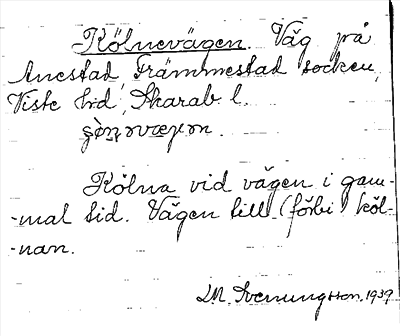 Kölnevägen. Väg på
Anestad Främmestad socken,
Viste hd, Skarab. l.

Kölna vid vägen i gam-
-mal tid. Vägen till (förbi) köl-
-nan.
D.M. Svenungsson. 1939